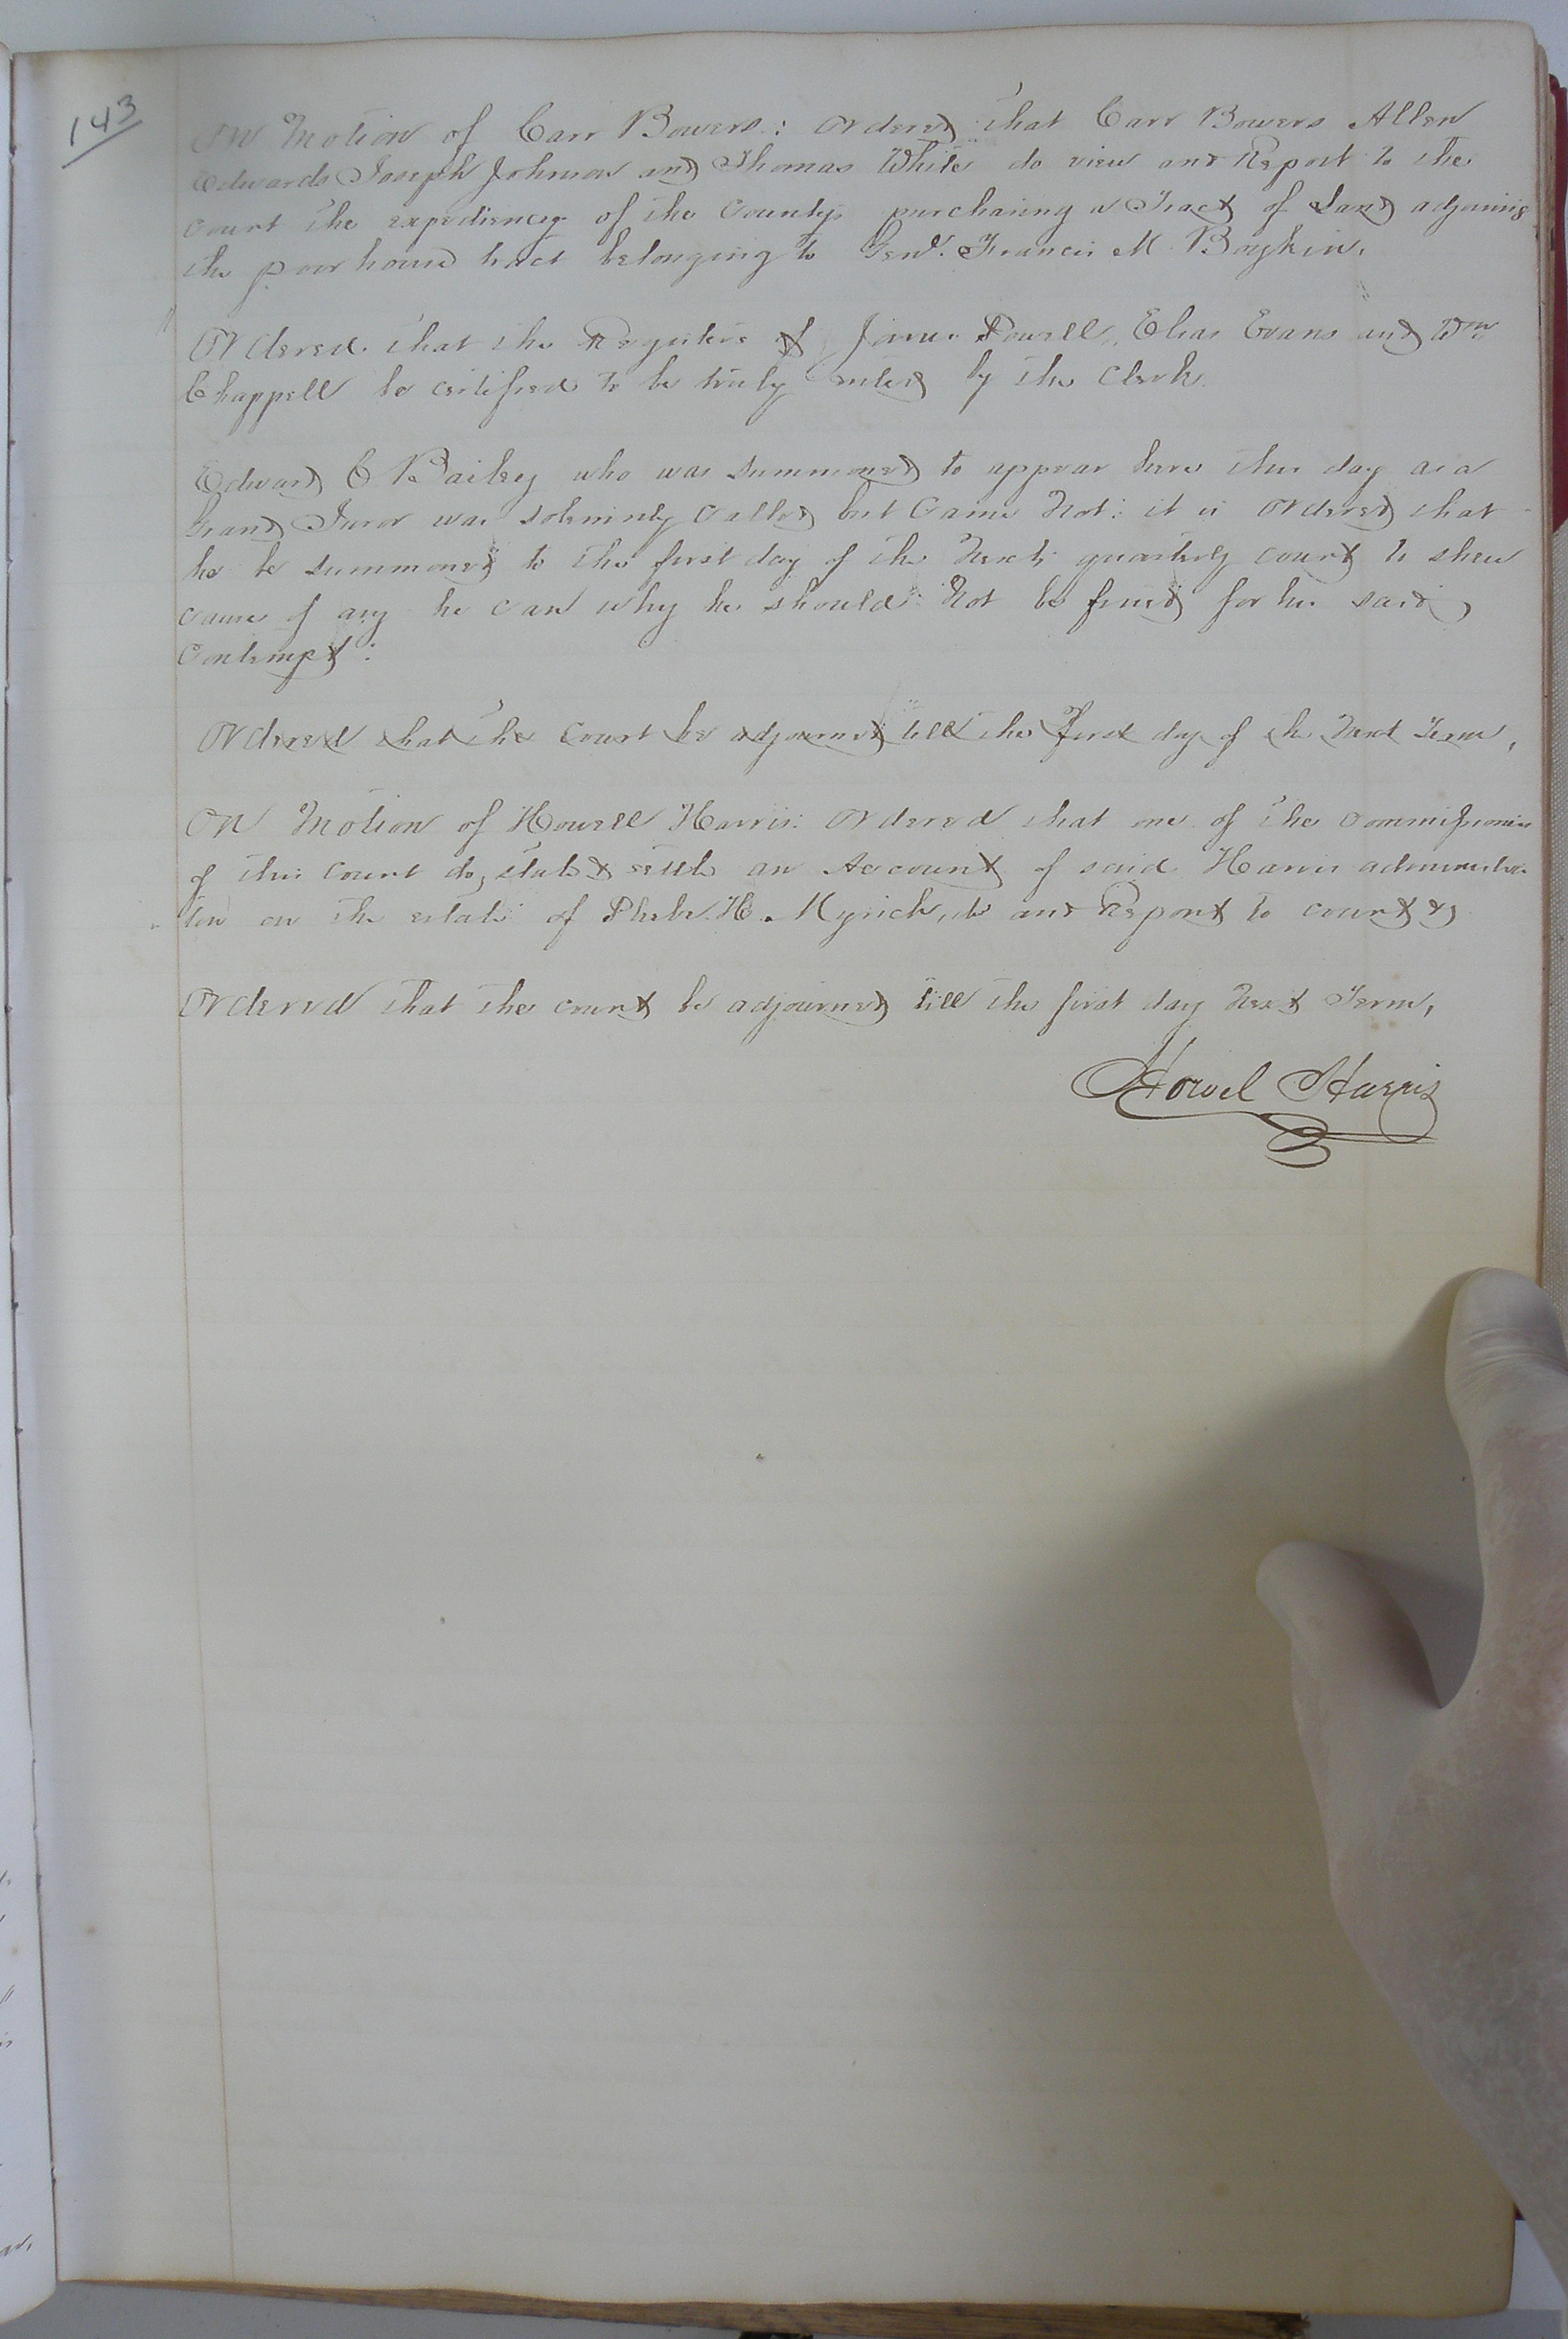 143
On Motion of Carr Bowers: Ordered that Carr Bowers Allen
Edwards Joseph Johnson and Thomas White do view and Report to the
Court the expediency of the County's purchasing a Tract of Land adjoining
the poor house tract belonging to Genl. Francis M. Boykin.
Ordered that the Registers of James Powell, Elias Evans and Wm
Chappell be certified to be truly entered by the Clerk.
Edward C Bailey who was summoned to appear here this day as a
Grand Juror was solemnly Called but Came Not: it is Ordered that
he be summoned to the first day of the Next quarterly court to shew
cause if any he can why he should Not be fined for his said
Contempt:
Ordered that the Court be adjourned till the first day of the Next Term,
On Motion of Howell Harris: Ordered that one of the Commissioners
of this Court do, state & settle an Account of said Harris administra-
tion on the estate of Phebe H. Myrick, do and Report to court &c
Ordered that the court be adjourned till the first day Next Term,
Howel Harris